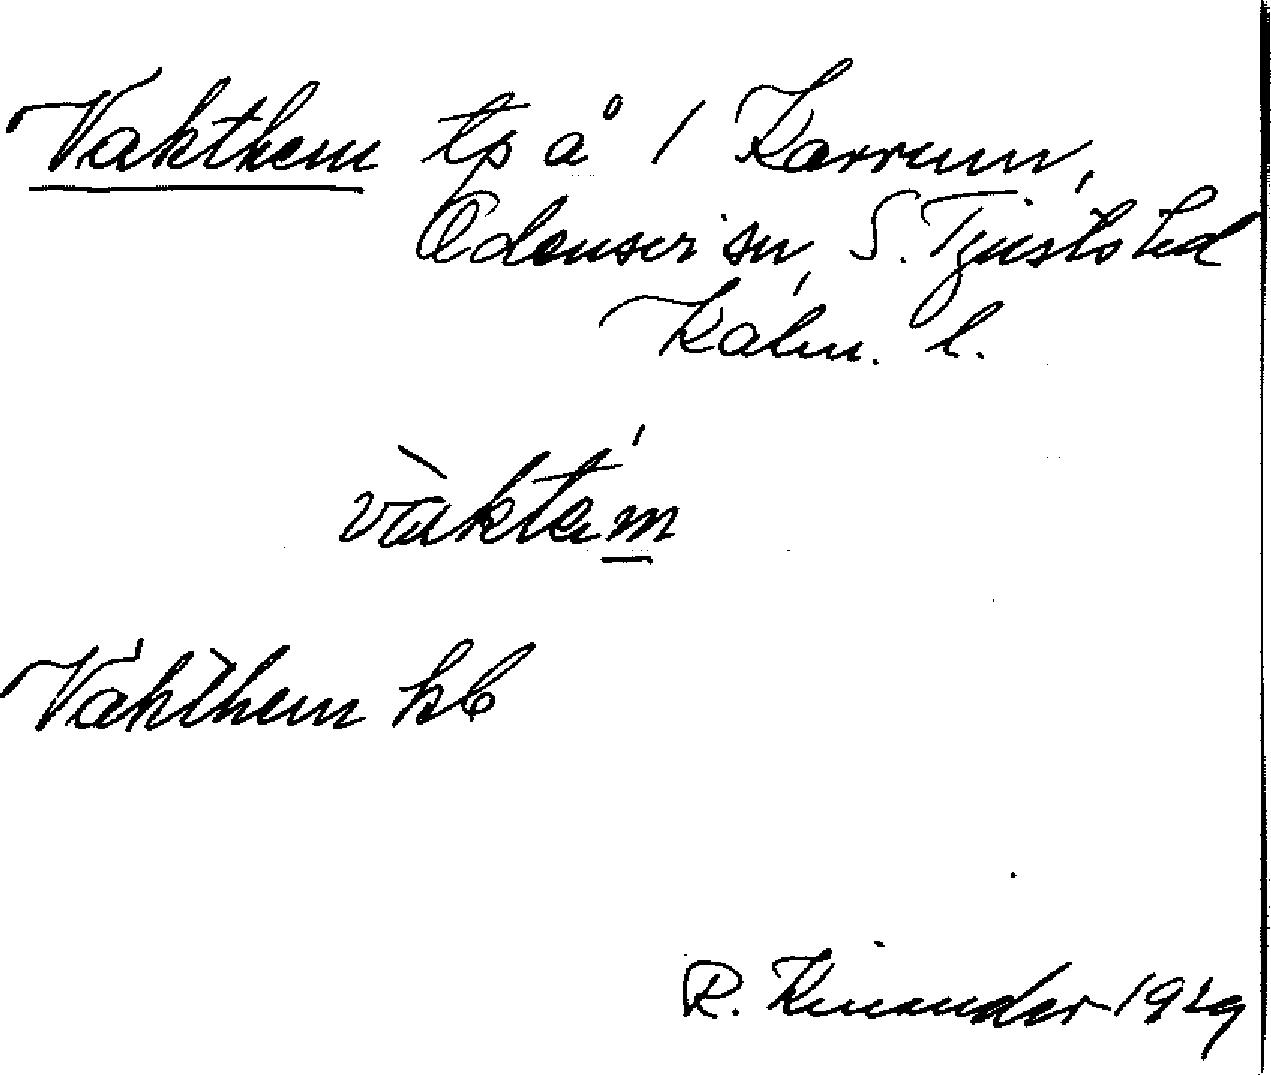 Vakthem tp å 1 Karrum,
Odensvi sn, S. Tjusts hd
Kalm. l.
vàktém
Vakthem kb
R. Kinander 1929